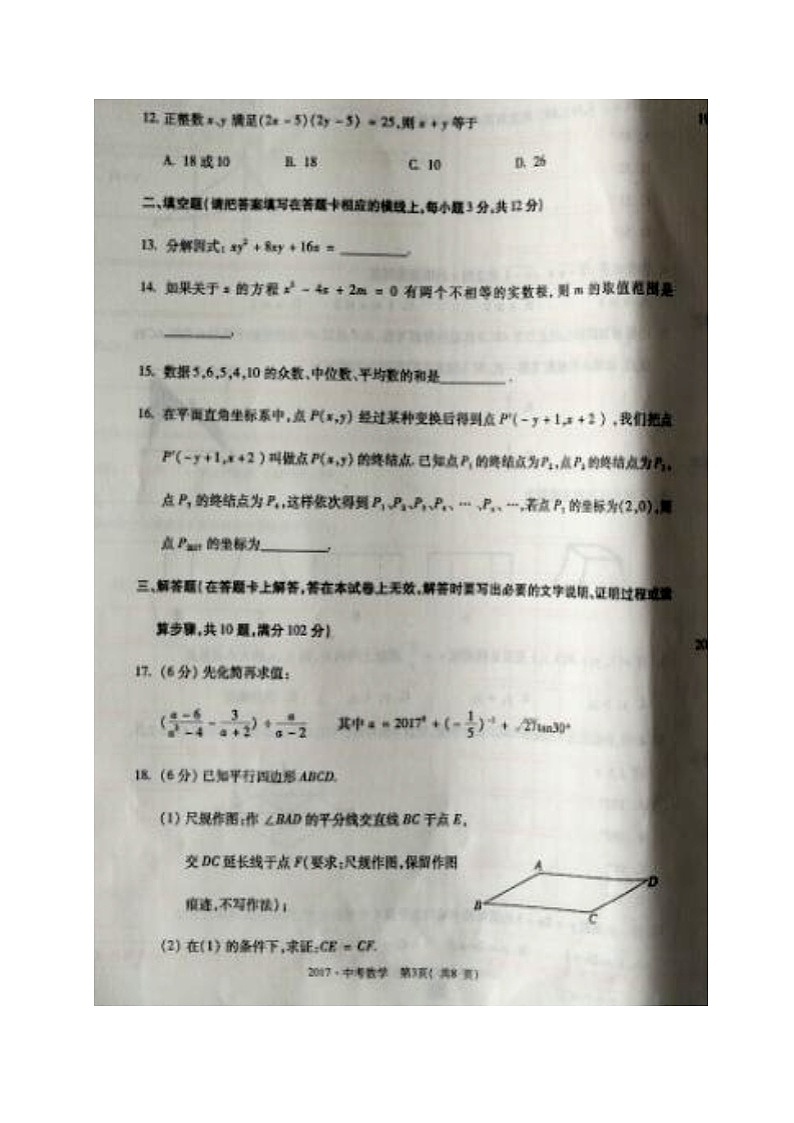 12. 正整数 x、y 满足(2x - 5)(2y - 5) = 25,则 x + y 等于
A. 18 或 10 B. 18 C. 10 D. 26
二、填空题(请把答案填写在答题卡相应的横线上,每小题3分,共12分)
13. 分解因式: xy² + 8xy + 16x = ________.
14. 如果关于 x 的方程 x² - 4x + 2m = 0 有两个不相等的实数根,则 m 的取值范围是
________.
15. 数据5,6,5,4,10 的众数、中位数、平均数的和是________.
16. 在平面直角坐标系中,点 P(x,y) 经过某种变换后得到点 P'(-y+1,x+2),我们把点
P'(-y+1,x+2) 叫做点P(x,y) 的终结点.已知点P₁的终结点为P₂,点P₂的终结点为P₃,
点 P₃ 的终结点为 P₄,这样依次得到 P₁、P₂、P₃、P₄、…、Pₙ、…,若点 P₁ 的坐标为(2,0),则
点 P₂₀₁₇ 的坐标为________.
三、解答题(在答题卡上解答,答在本试卷上无效,解答时要写出必要的文字说明、证明过程或演
算步骤,共 10 题,满分 102 分)
17. (6 分) 先化简再求值:
((a-6)/(a²-4) - 3/(a+2)) ÷ a/(a-2) 其中 a = 2017⁰ + (-1/5)⁻¹ + √27tan30°
18. (6 分) 已知平行四边形 ABCD.
(1) 尺规作图:作 ∠BAD 的平分线交直线 BC 于点 E,
交 DC 延长线于点 F(要求:尺规作图,保留作图
痕迹,不写作法);
A
D
B
C
(2) 在(1) 的条件下,求证:CE = CF.
2017·中考数学 第3页( 共8 页)
20